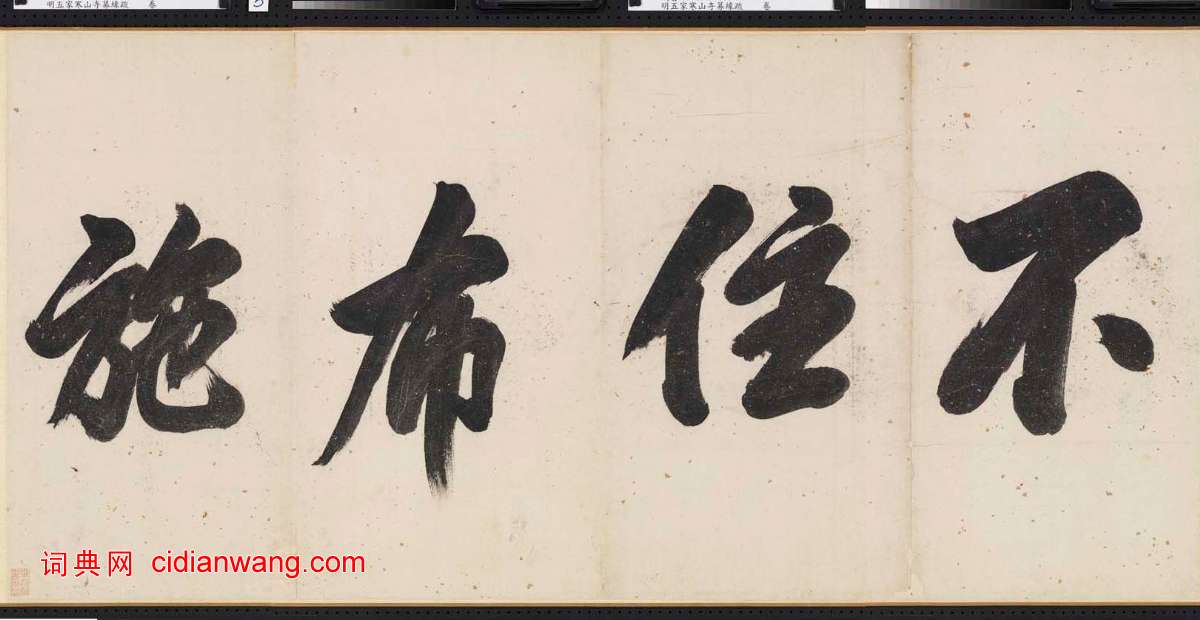 明五家寒山寺募緣疏 卷
明五家寒山寺募緣疏 卷
不住布施
词典网 cidianwang.com